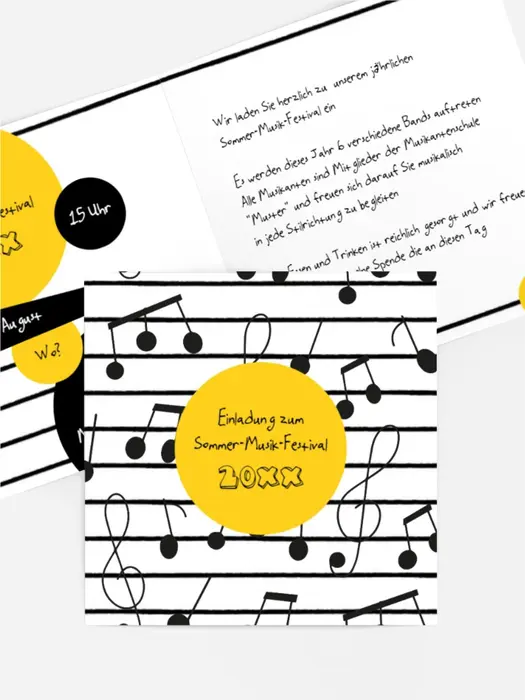 Wir laden Sie herzlich zu unserem jährlichen
Sommer-Musik-Festival ein
Es werden dieses Jahr 6 verschiedene Bands auftreten
Alle Musikanten sind Mitglieder der Musikantenschule
"Muster" und freuen sich darauf Sie musikalisch
in jede Stilrichtung zu begleiten
Essen und Trinken ist reichlich gesorgt und wir
Spende die an diesen Tag
15 Uhr
August
Wo?
Einladung zum
Sommer-Musik-Festival
20xx